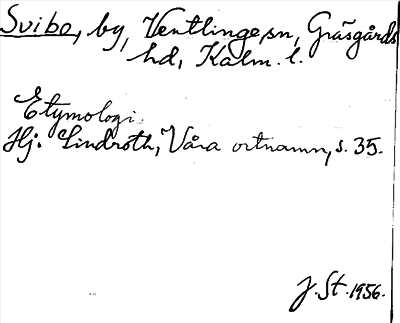 Svibo, by, Ventlinge sn, Gräsgårds
hd, Kalm. l.
Etymologi.
Hj. Lindroth, Våra ortnamn, s. 35.
J. St. 1956.